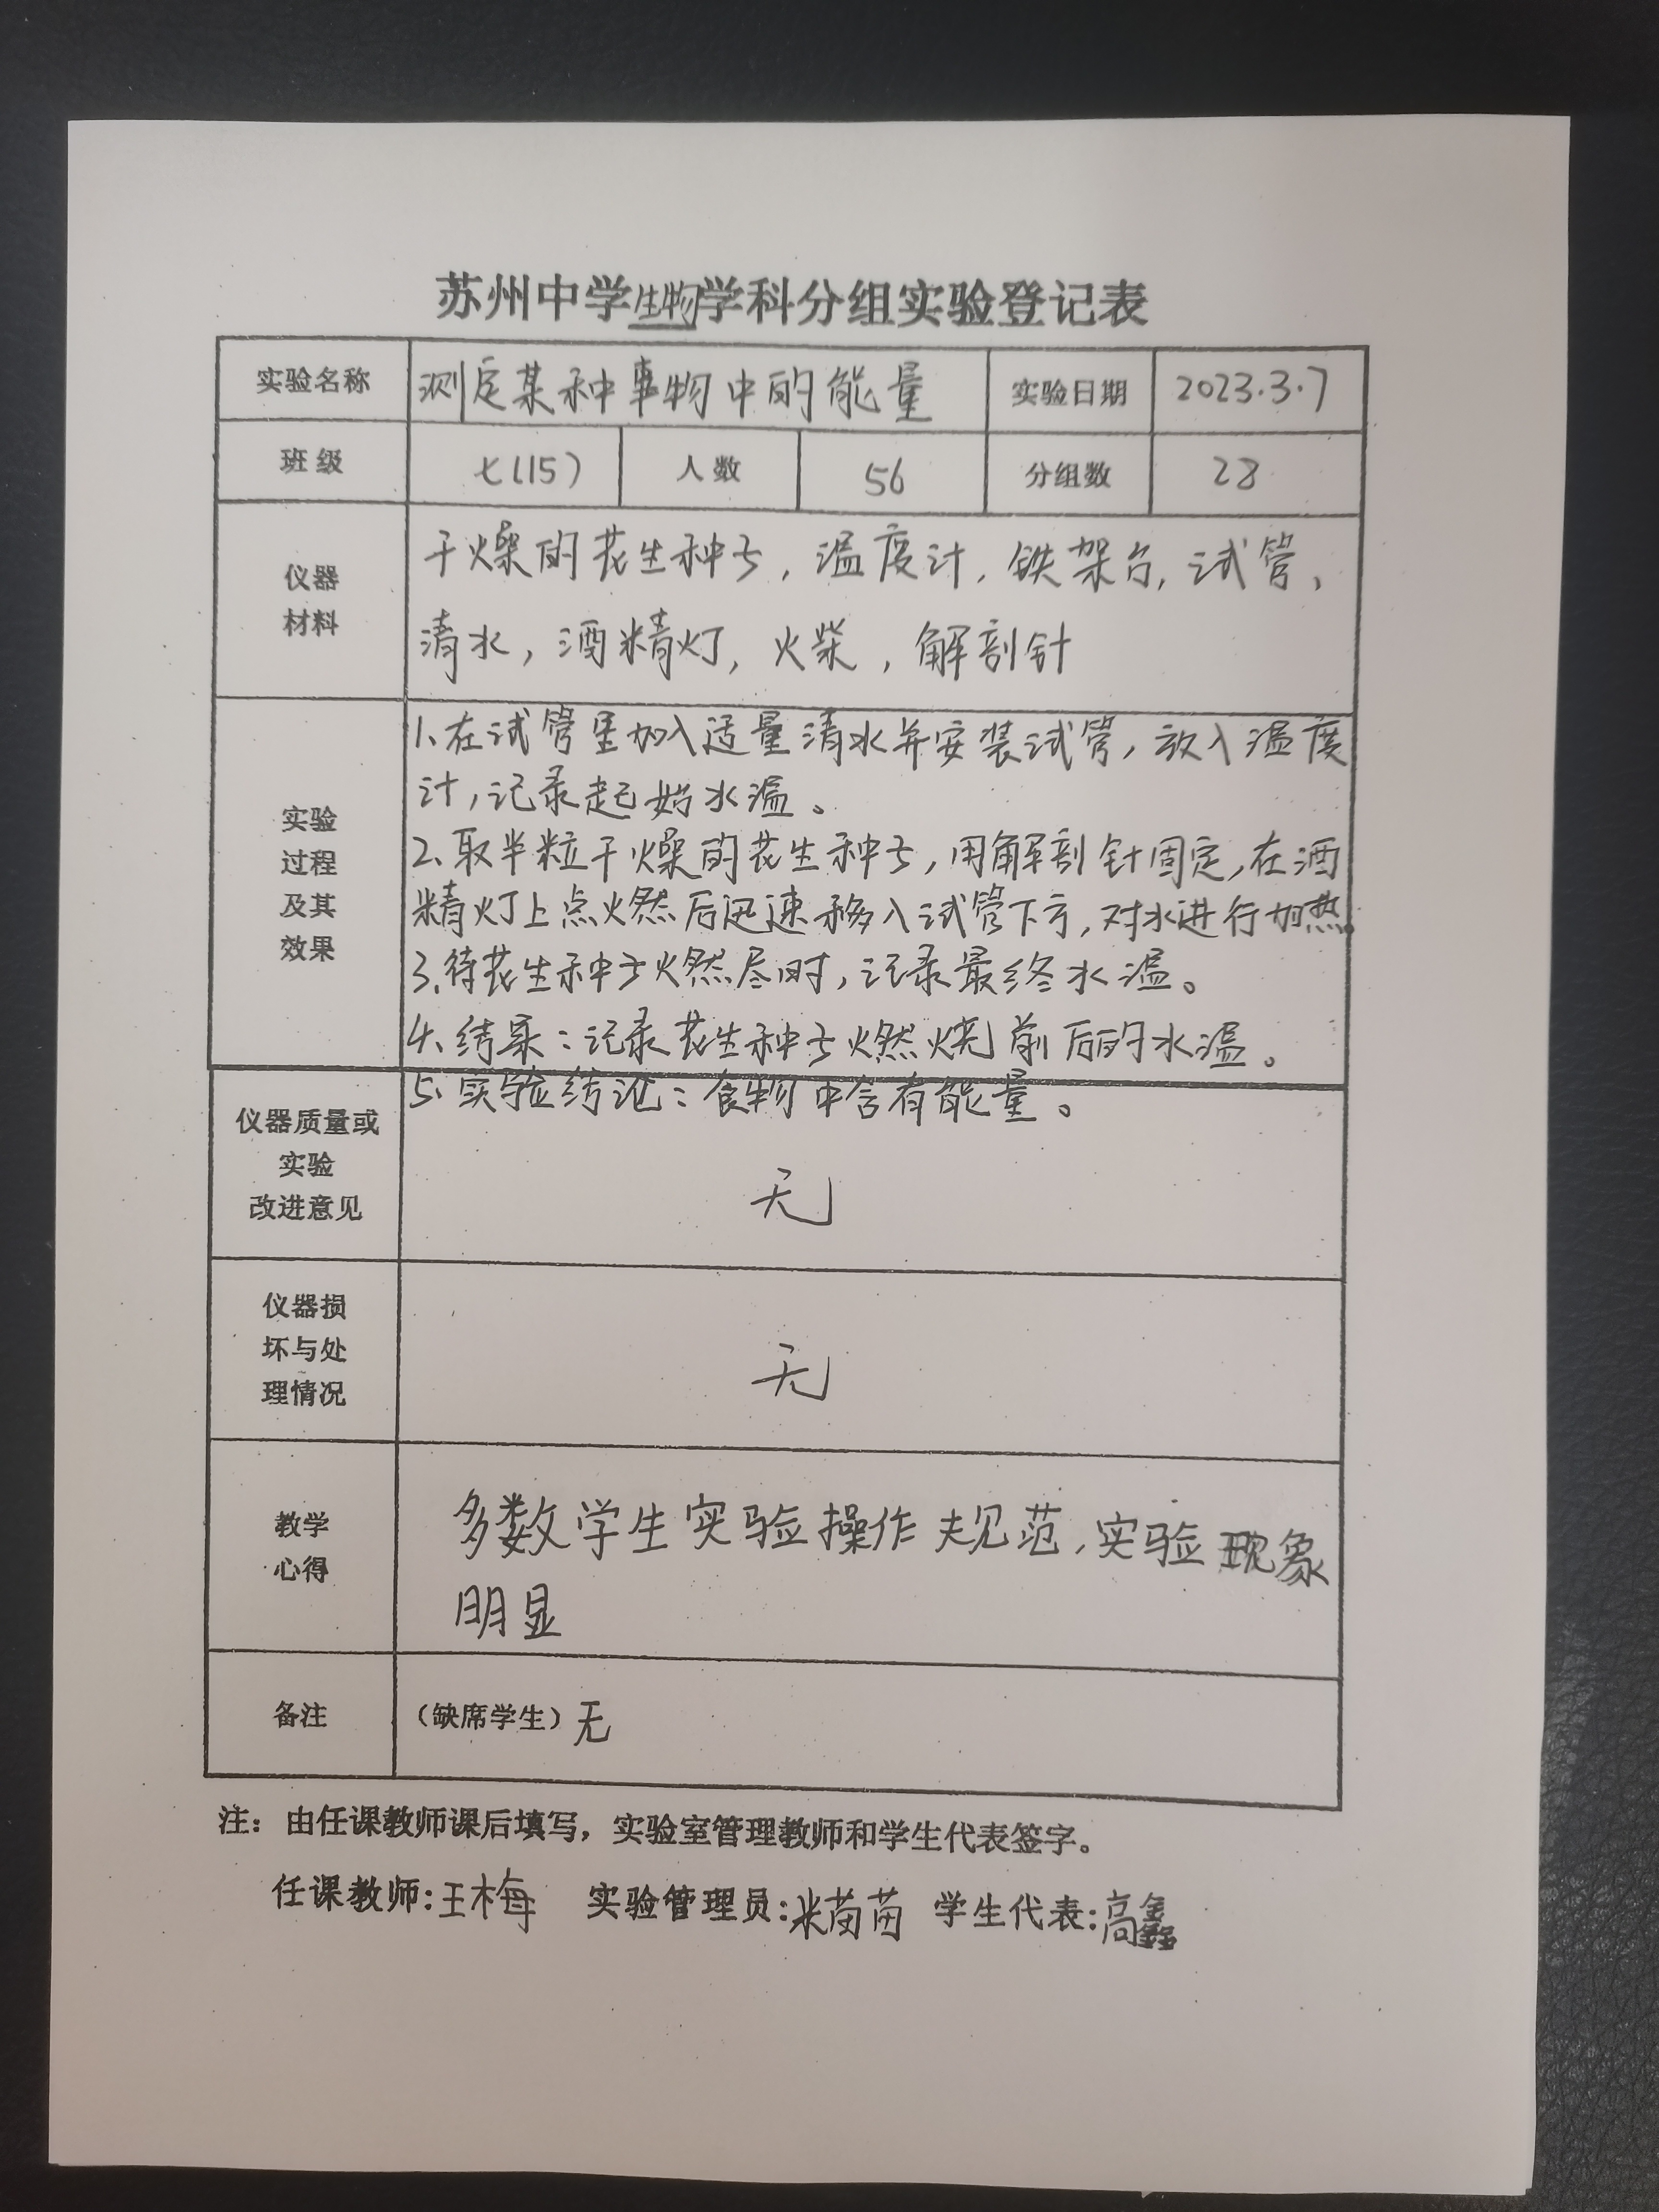 苏州中学生物学科分组实验登记表
实验名称 测定某种事物中的能量 实验日期 2023.3.7
班级 七(15) 人数 56 分组数 28
仪器
材料
干燥的花生种子,温度计,铁架台,试管,
清水,酒精灯,火柴,解剖针
实验
过程
及其
效果
1、在试管里加入适量清水并安装试管,放入温度
计,记录起始水温。
2、取半粒干燥的花生种子,用解剖针固定,在酒
精灯上点火燃后迅速移入试管下方,对水进行加热。
3、待花生种子燃尽时,记录最终水温。
4、结果:记录花生种子燃烧前后的水温。
5、实验结论:食物中含有能量。
仪器质量或
实验
改进意见
无
仪器损
坏与处
理情况
无
教学
心得
多数学生实验操作规范,实验现象
明显
备注 (缺席学生)无
注:由任课教师课后填写,实验室管理教师和学生代表签字。
任课教师:王梅 实验管理员:米苗苗 学生代表:高鑫